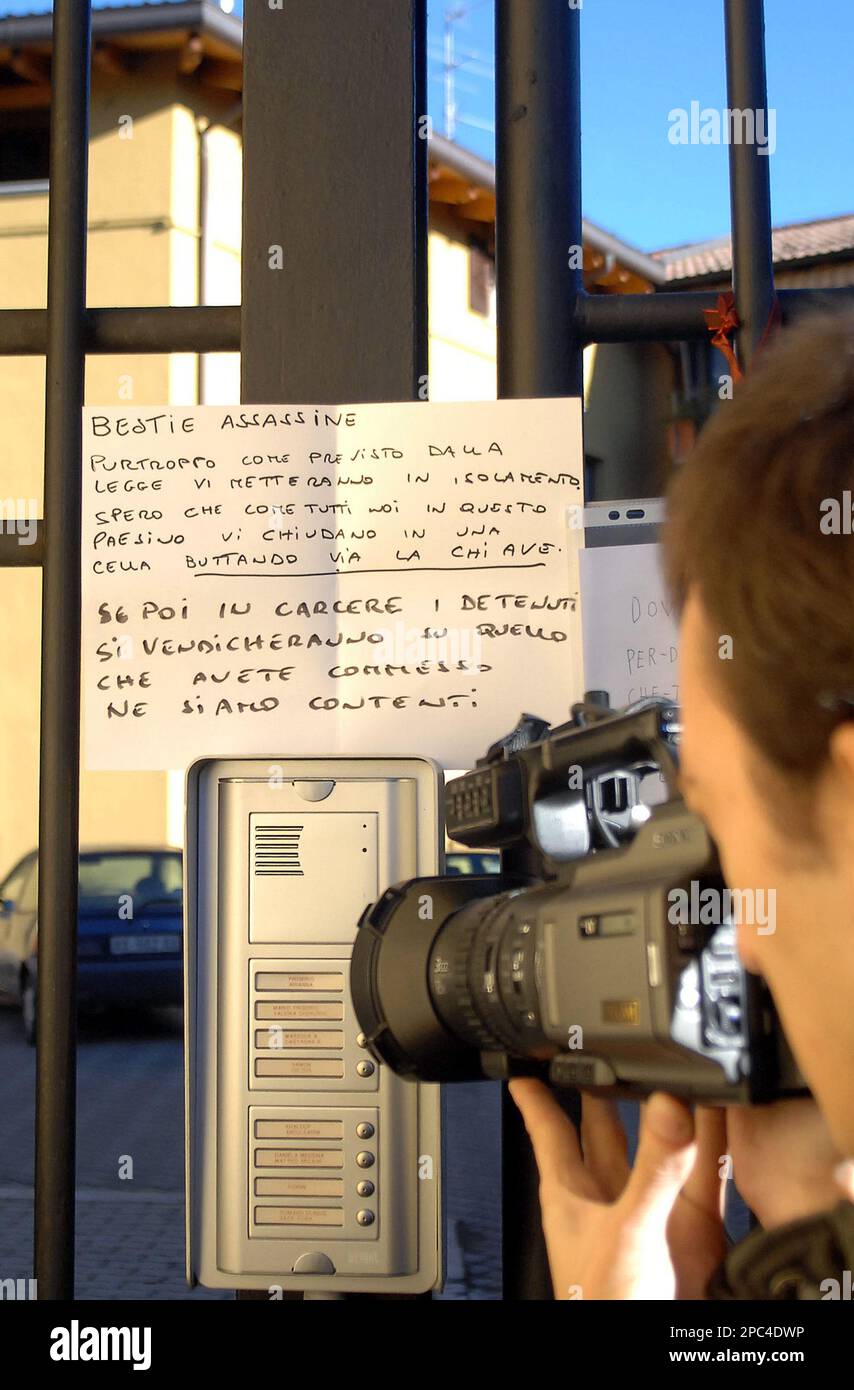 BESTIE ASSASSINE
PURTROPPO COME PREVISTO DALLA
LEGGE VI METTERANNO IN ISOLAMENTO.
SPERO CHE COME TUTTI NOI IN QUESTO
PAESINO VI CHIUDANO IN UNA
CELLA BUTTANDO VIA LA CHIAVE.
SE POI IN CARCERE I DETENUTI
SI VENDICHERANNO SU QUELLO
CHE AVETE COMMESSO
NE SIAMO CONTENTI
DOV
PER-D
CHE-T
SONY
alamy
Image ID: 2PC4DWP
www.alamy.com